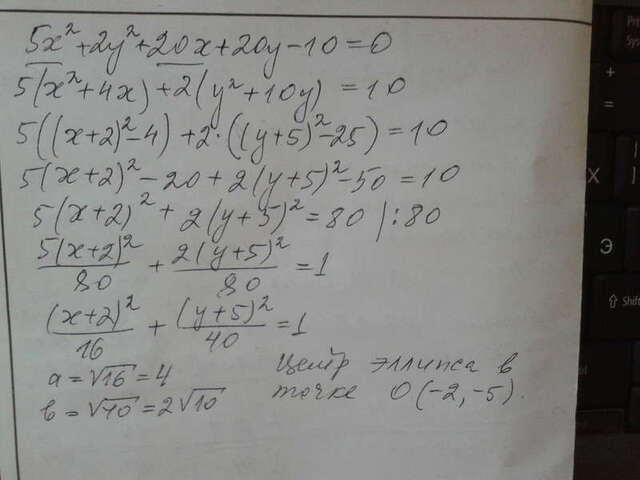 5x²+2y²+20x+20y-10=0
5(x²+4x)+2(y²+10y)=10
5((x+2)²-4)+2·((y+5)²-25)=10
5(x+2)²-20+2(y+5)²-50=10
5(x+2)²+2(y+5)²=80 |:80
5(x+2)²/80 + 2(y+5)²/80 =1
(x+2)²/16 + (y+5)²/40 =1
a=√16=4
b=√40=2√10
Центр эллипса в
точке O(-2,-5).
+
=
X
Э
⇧ Shift